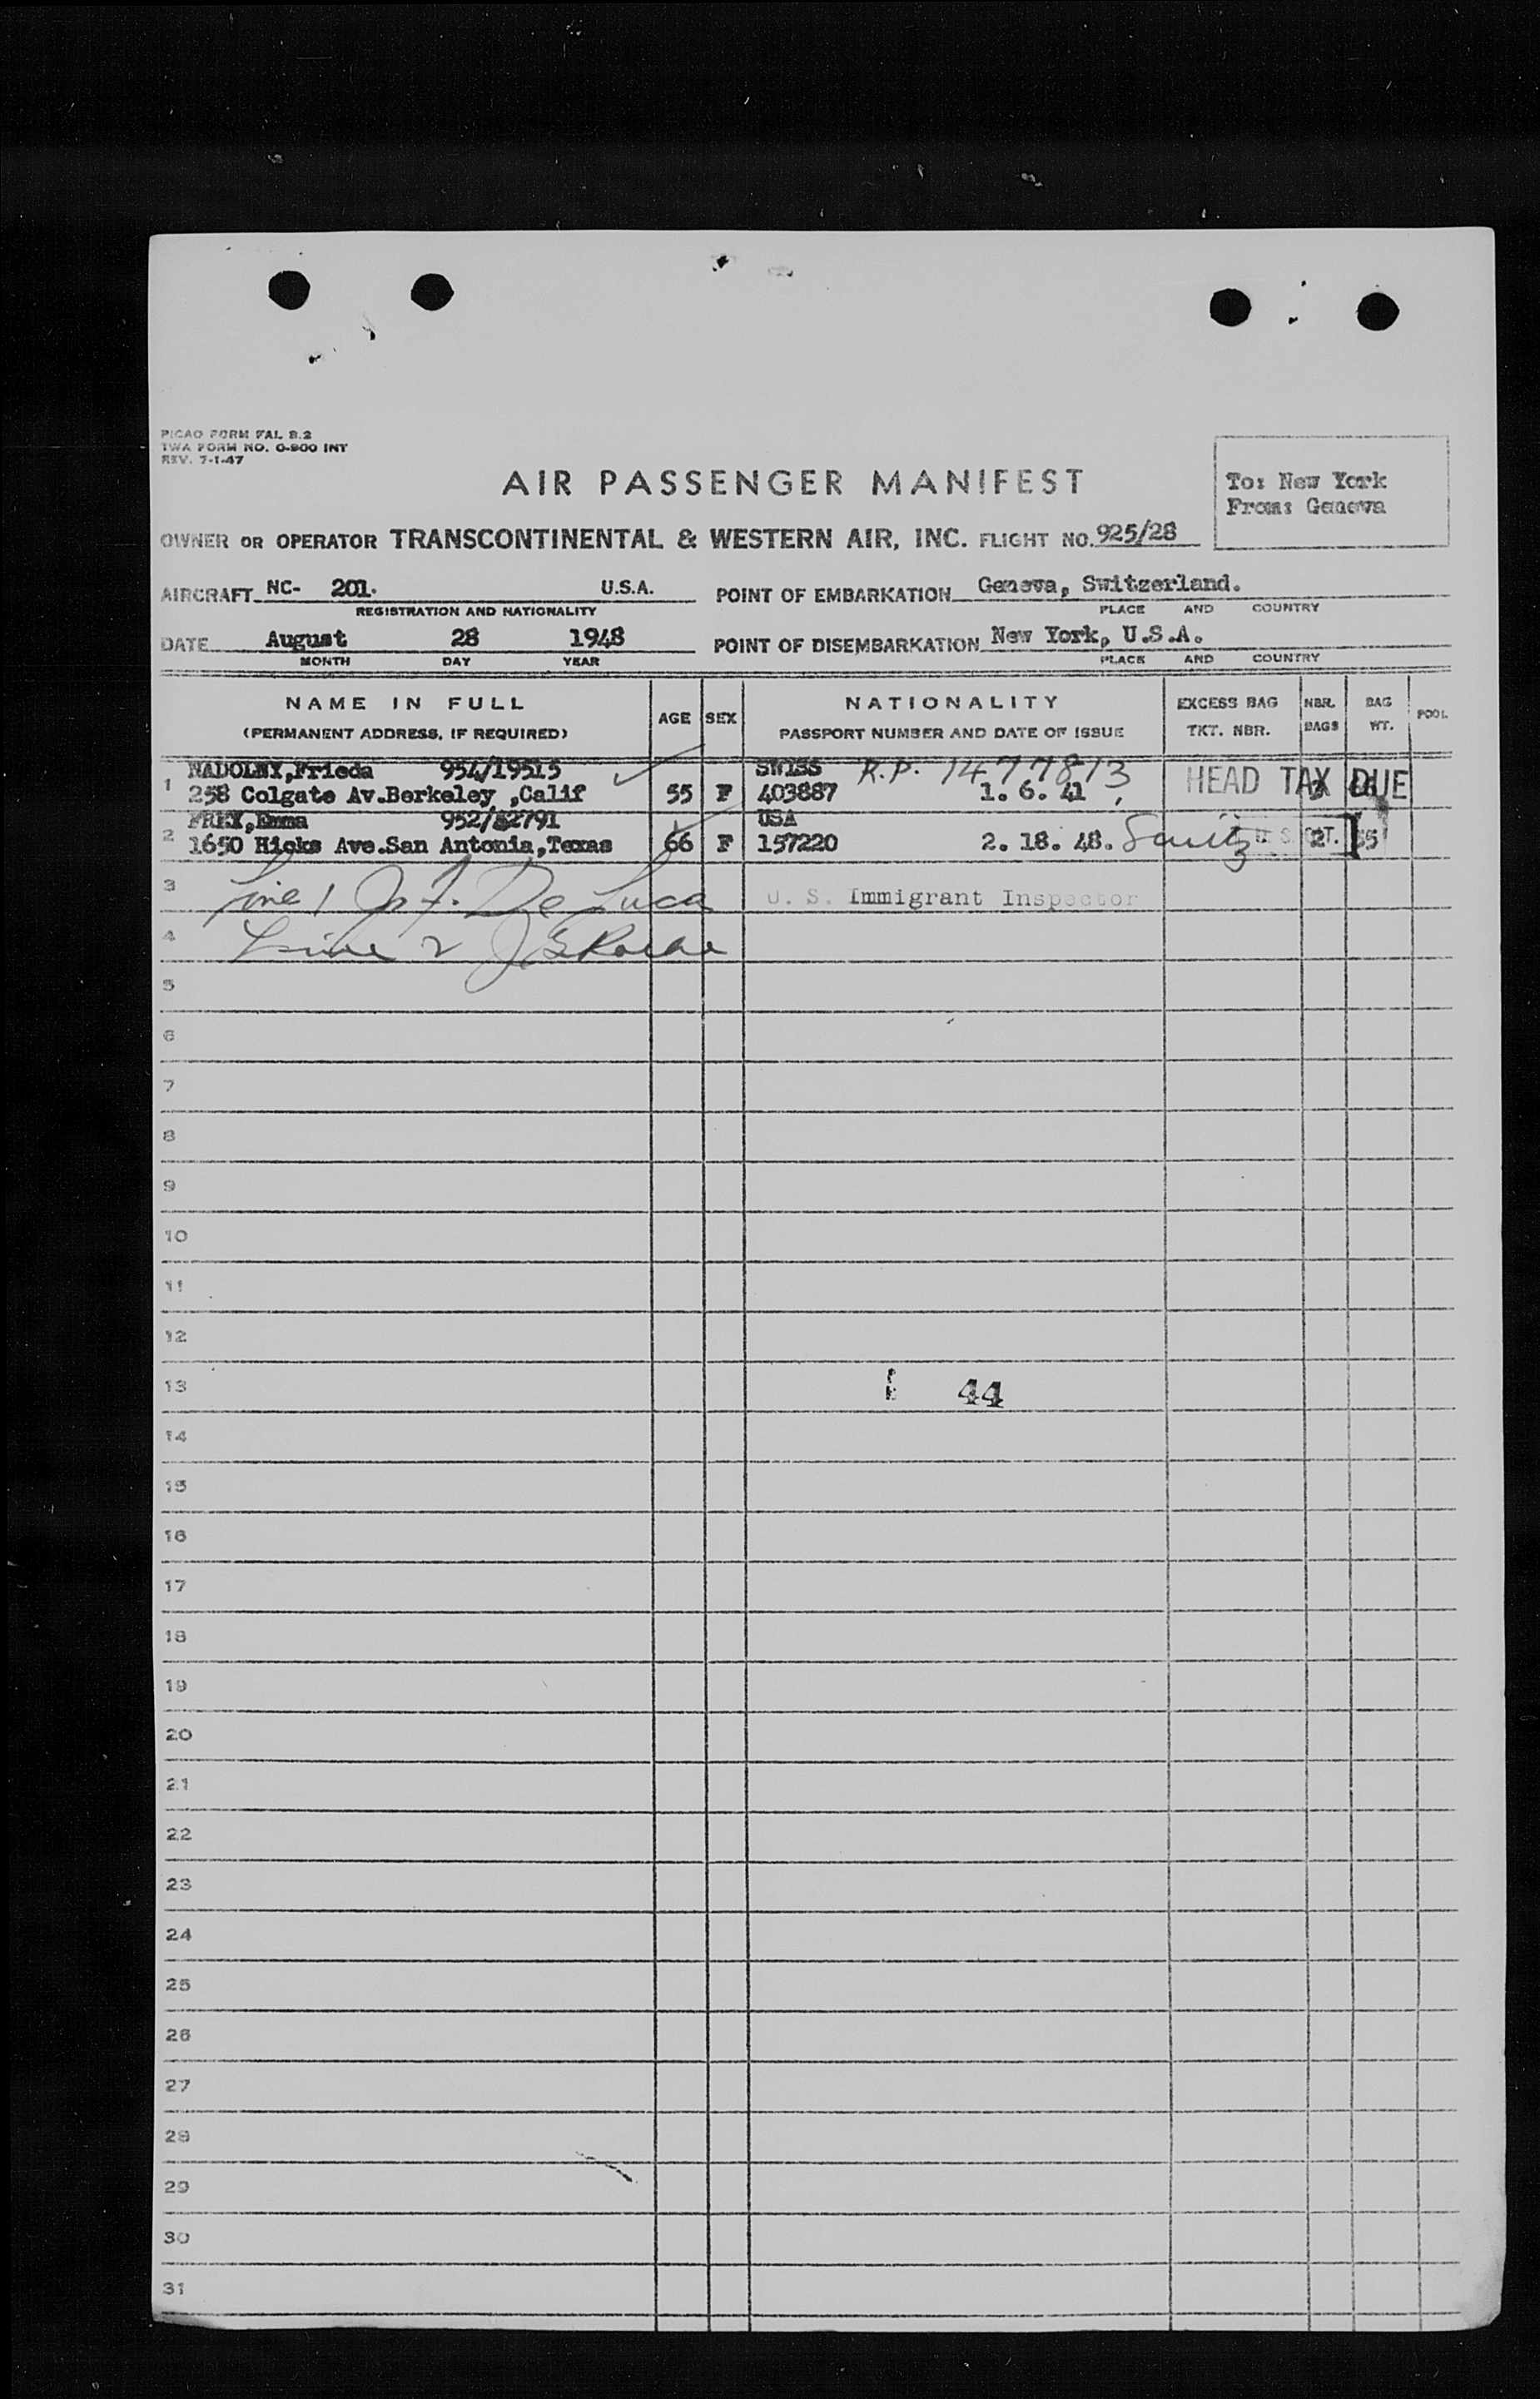 PICAO FORM FAL 8.2
TWA FORM NO. O-800 INT
REV. 7-1-47
To: New York
From: Geneva
AIR PASSENGER MANIFEST
OWNER OR OPERATOR TRANSCONTINENTAL & WESTERN AIR, INC. FLIGHT NO. 925/28
AIRCRAFT NC- 201. U.S.A. POINT OF EMBARKATION Geneva, Switzerland.
REGISTRATION AND NATIONALITY PLACE AND COUNTRY
DATE August 28 1948 POINT OF DISEMBARKATION New York, U.S.A.
MONTH DAY YEAR PLACE AND COUNTRY
NAME IN FULL AGE SEX NATIONALITY EXCESS BAG NBR. BAG POOL
(PERMANENT ADDRESS, IF REQUIRED) PASSPORT NUMBER AND DATE OF ISSUE TKT. NBR. BAGS WT.
NADOLNY,Frieda 954/19515 SWISS R.P. 1477813 HEAD TAX DUE
1 258 Colgate Av.Berkeley ,Calif 55 F 403887 1. 6. 41
FREY,Emma 952/82791 USA
2 1650 Hicks Ave.San Antonia,Texas 66 F 157220 2. 18. 48. U.S. CIT. 2 55
3 Line 1 De Luca U. S. Immigrant Inspector
4 Line 2
5
6
7
8
9
10
11
12
13 44
14
15
16
17
18
19
20
21
22
23
24
25
26
27
28
29
30
31